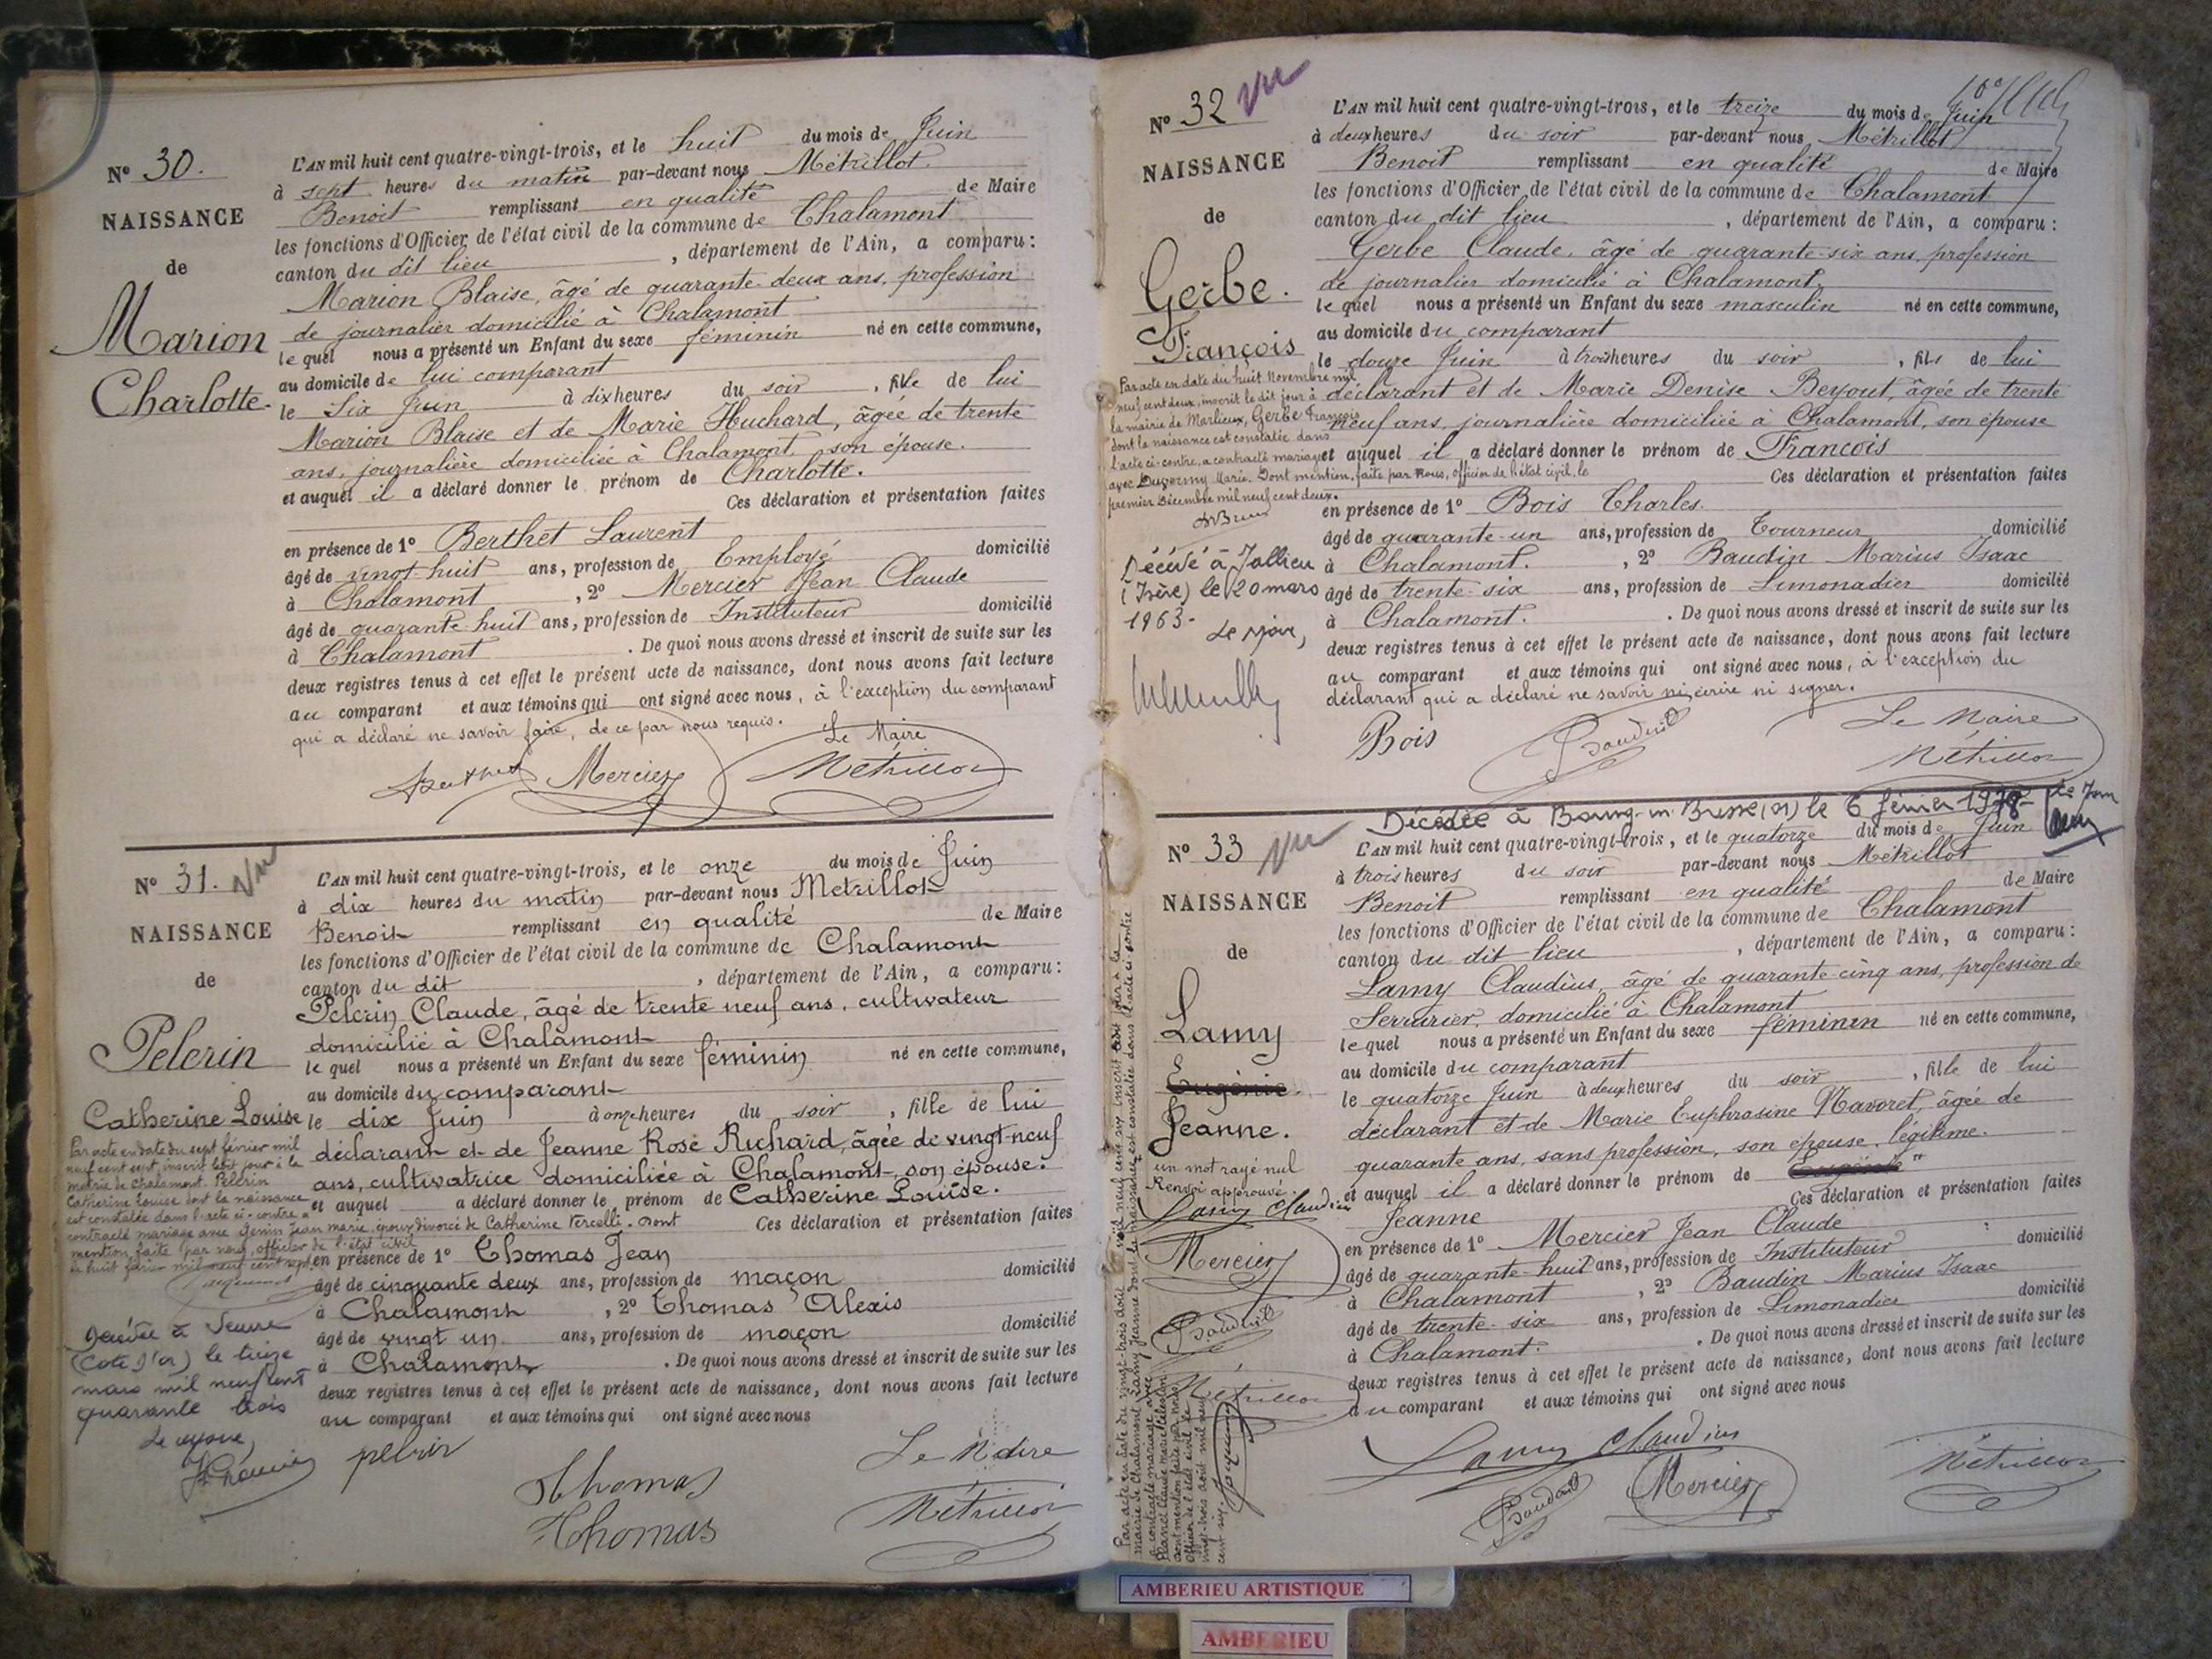 Nº 30.
NAISSANCE
de
Marion
Charlotte.
L'AN mil huit cent quatre-vingt-trois, et le huit du mois de Juin
à sept heures du matin par-devant nous Métrillot
Benoit remplissant en qualité de Maire
les fonctions d'Officier de l'état civil de la commune de Chalamont
canton du dit lieu , département de l'Ain, a comparu :
Marion Blaise, âgé de quarante-deux ans, profession
de journalier domicilié à Chalamont
lequel nous a présenté un Enfant du sexe féminin né en cette commune,
au domicile de lui comparant
le Six Juin à dix heures du soir , fille de lui
Marion Blaise et de Marie Huchard, âgée de trente
ans, journalière domiciliée à Chalamont, son épouse.
et auquel il a déclaré donner le prénom de Charlotte.
Ces déclaration et présentation faites
en présence de 1º Berthet Laurent
âgé de vingt-huit ans, profession de Employé domicilié
à Chalamont , 2º Mercier Jean Claude
âgé de quarante huit ans, profession de Instituteur domicilié
à Chalamont . De quoi nous avons dressé et inscrit de suite sur les
deux registres tenus à cet effet le présent acte de naissance, dont nous avons fait lecture
au comparant et aux témoins qui ont signé avec nous, à l'exception du comparant
qui a déclaré ne savoir faire, de ce par nous requis.
Le Maire
Berthet Mercier Métrillot
Nº 31. Vu
NAISSANCE
de
Pelerin
Catherine Louise
Par acte en date du sept février mil
neuf cent sept, inscrit le dit jour à la
mairie de Chalamont. Pellerin
Catherine Louise dont la naissance
est constatée dans l'acte ci-contre a
contracté mariage avec Genin Jean marie, époux divorcé de Catherine Vercelli. Dont
mention, faite par nous, officier de l'état civil
le huit février mil neuf cent sept.
Décédée à Veuvre
(Côte d'or) le treize
mars mil neuf cent
quarante trois
Le Maire,
L'AN mil huit cent quatre-vingt-trois, et le onze du mois de Juin
à dix heures du matin par-devant nous Metrillot
Benoit remplissant en qualité de Maire
les fonctions d'Officier de l'état civil de la commune de Chalamont
canton du dit , département de l'Ain, a comparu :
Pelerin Claude, âgé de trente neuf ans, cultivateur
domicilié à Chalamont
lequel nous a présenté un Enfant du sexe féminin né en cette commune,
au domicile du comparant
le dix Juin à onze heures du soir , fille de lui
déclarant et de Jeanne Rose Richard, âgée de vingt-neuf
ans, cultivatrice domiciliée à Chalamont, son épouse.
et auquel a déclaré donner le prénom de Catherine Louise.
Ces déclaration et présentation faites
en présence de 1º Thomas Jean
âgé de cinquante deux ans, profession de maçon domicilié
à Chalamont , 2º Thomas Alexis
âgé de vingt un ans, profession de maçon domicilié
à Chalamont . De quoi nous avons dressé et inscrit de suite sur les
deux registres tenus à cet effet le présent acte de naissance, dont nous avons fait lecture
au comparant et aux témoins qui ont signé avec nous
pelerin Le Maire
Thomas
Thomas Métrillot
Nº 32 Vu
NAISSANCE
de
Gerbe.
François
Par acte en date du huit novembre mil
neuf cent deux, inscrit le dit jour à
la mairie de Marlieux, Gerbe François
dont la naissance est constatée dans
l'acte ci-contre, a contracté mariage
avec Duvormy Marie. Dont mention, faite par Nous, officier de l'état civil, le
premier Décembre mil neuf cent deux.
Décédé à Jallieu
(Isère) le 20 mars
1963-
Le Maire,
L'AN mil huit cent quatre-vingt-trois, et le treize du mois de Juin
à deux heures du soir par-devant nous Métrillot
Benoit remplissant en qualité de Maire
les fonctions d'Officier de l'état civil de la commune de Chalamont
canton du dit lieu , département de l'Ain, a comparu :
Gerbe Claude, âgé de quarante-six ans, profession
de journalier domicilié à Chalamont,
lequel nous a présenté un Enfant du sexe masculin né en cette commune,
au domicile du comparant
le douze Juin à trois heures du soir , fils de lui
déclarant et de Marie Denise Beyout, âgée de trente
neuf ans, journalière domiciliée à Chalamont, son épouse
et auquel il a déclaré donner le prénom de François
Ces déclaration et présentation faites
en présence de 1º Bois Charles.
âgé de quarante-un ans, profession de Tourneur domicilié
à Chalamont. , 2º Baudin Marius Isaac
âgé de trente-six ans, profession de Limonadier domicilié
à Chalamont. . De quoi nous avons dressé et inscrit de suite sur les
deux registres tenus à cet effet le présent acte de naissance, dont nous avons fait lecture
au comparant et aux témoins qui ont signé avec nous, à l'exception du
déclarant qui a déclaré ne savoir ni écrire ni signer.
Le Maire
Bois Baudin Métrillot
Décédée à Bourg-en-Bresse (01) le 6 février 1978- Le Maire
Nº 33 Vu
NAISSANCE
de
Lamy
Eugénie.
Jeanne.
un mot rayé nul
Renvoi approuvé.
Lamy Claudius
Mercier
Baudin
Métrillot
Par acte en date du vingt-trois août mil neuf cent six inscrit le dit jour à la
mairie de Chalamont, Lamy Jeanne dont la naissance est constatée dans l'acte ci-contre
a contracté mariage avec
Planel Claude Marie
dont mention faite par nous
officier de l'état civil le
vingt-trois août mil neuf
cent six.
L'AN mil huit cent quatre-vingt-trois, et le quatorze du mois de Juin
à trois heures du soir par-devant nous Métrillot
Benoit remplissant en qualité de Maire
les fonctions d'Officier de l'état civil de la commune de Chalamont
canton du dit lieu , département de l'Ain, a comparu :
Lamy Claudius, âgé de quarante-cinq ans, profession de
Serrurier, domicilié à Chalamont
lequel nous a présenté un Enfant du sexe féminin né en cette commune,
au domicile du comparant
le quatorze Juin à deux heures du soir , fille de lui
déclarant et de Marie Euphrasine Navoret, âgée de
quarante ans, sans profession, son épouse légitime.
et auquel il a déclaré donner le prénom de Eugénie
Jeanne Ces déclaration et présentation faites
en présence de 1º Mercier Jean Claude
âgé de quarante-huit ans, profession de Instituteur domicilié
à Chalamont , 2º Baudin Marius Isaac
âgé de trente-six ans, profession de Limonadier domicilié
à Chalamont. . De quoi nous avons dressé et inscrit de suite sur les
deux registres tenus à cet effet le présent acte de naissance, dont nous avons fait lecture
au comparant et aux témoins qui ont signé avec nous
Lamy Claudius
Baudin Mercier Métrillot
AMBERIEU ARTISTIQUE
AMBERIEU